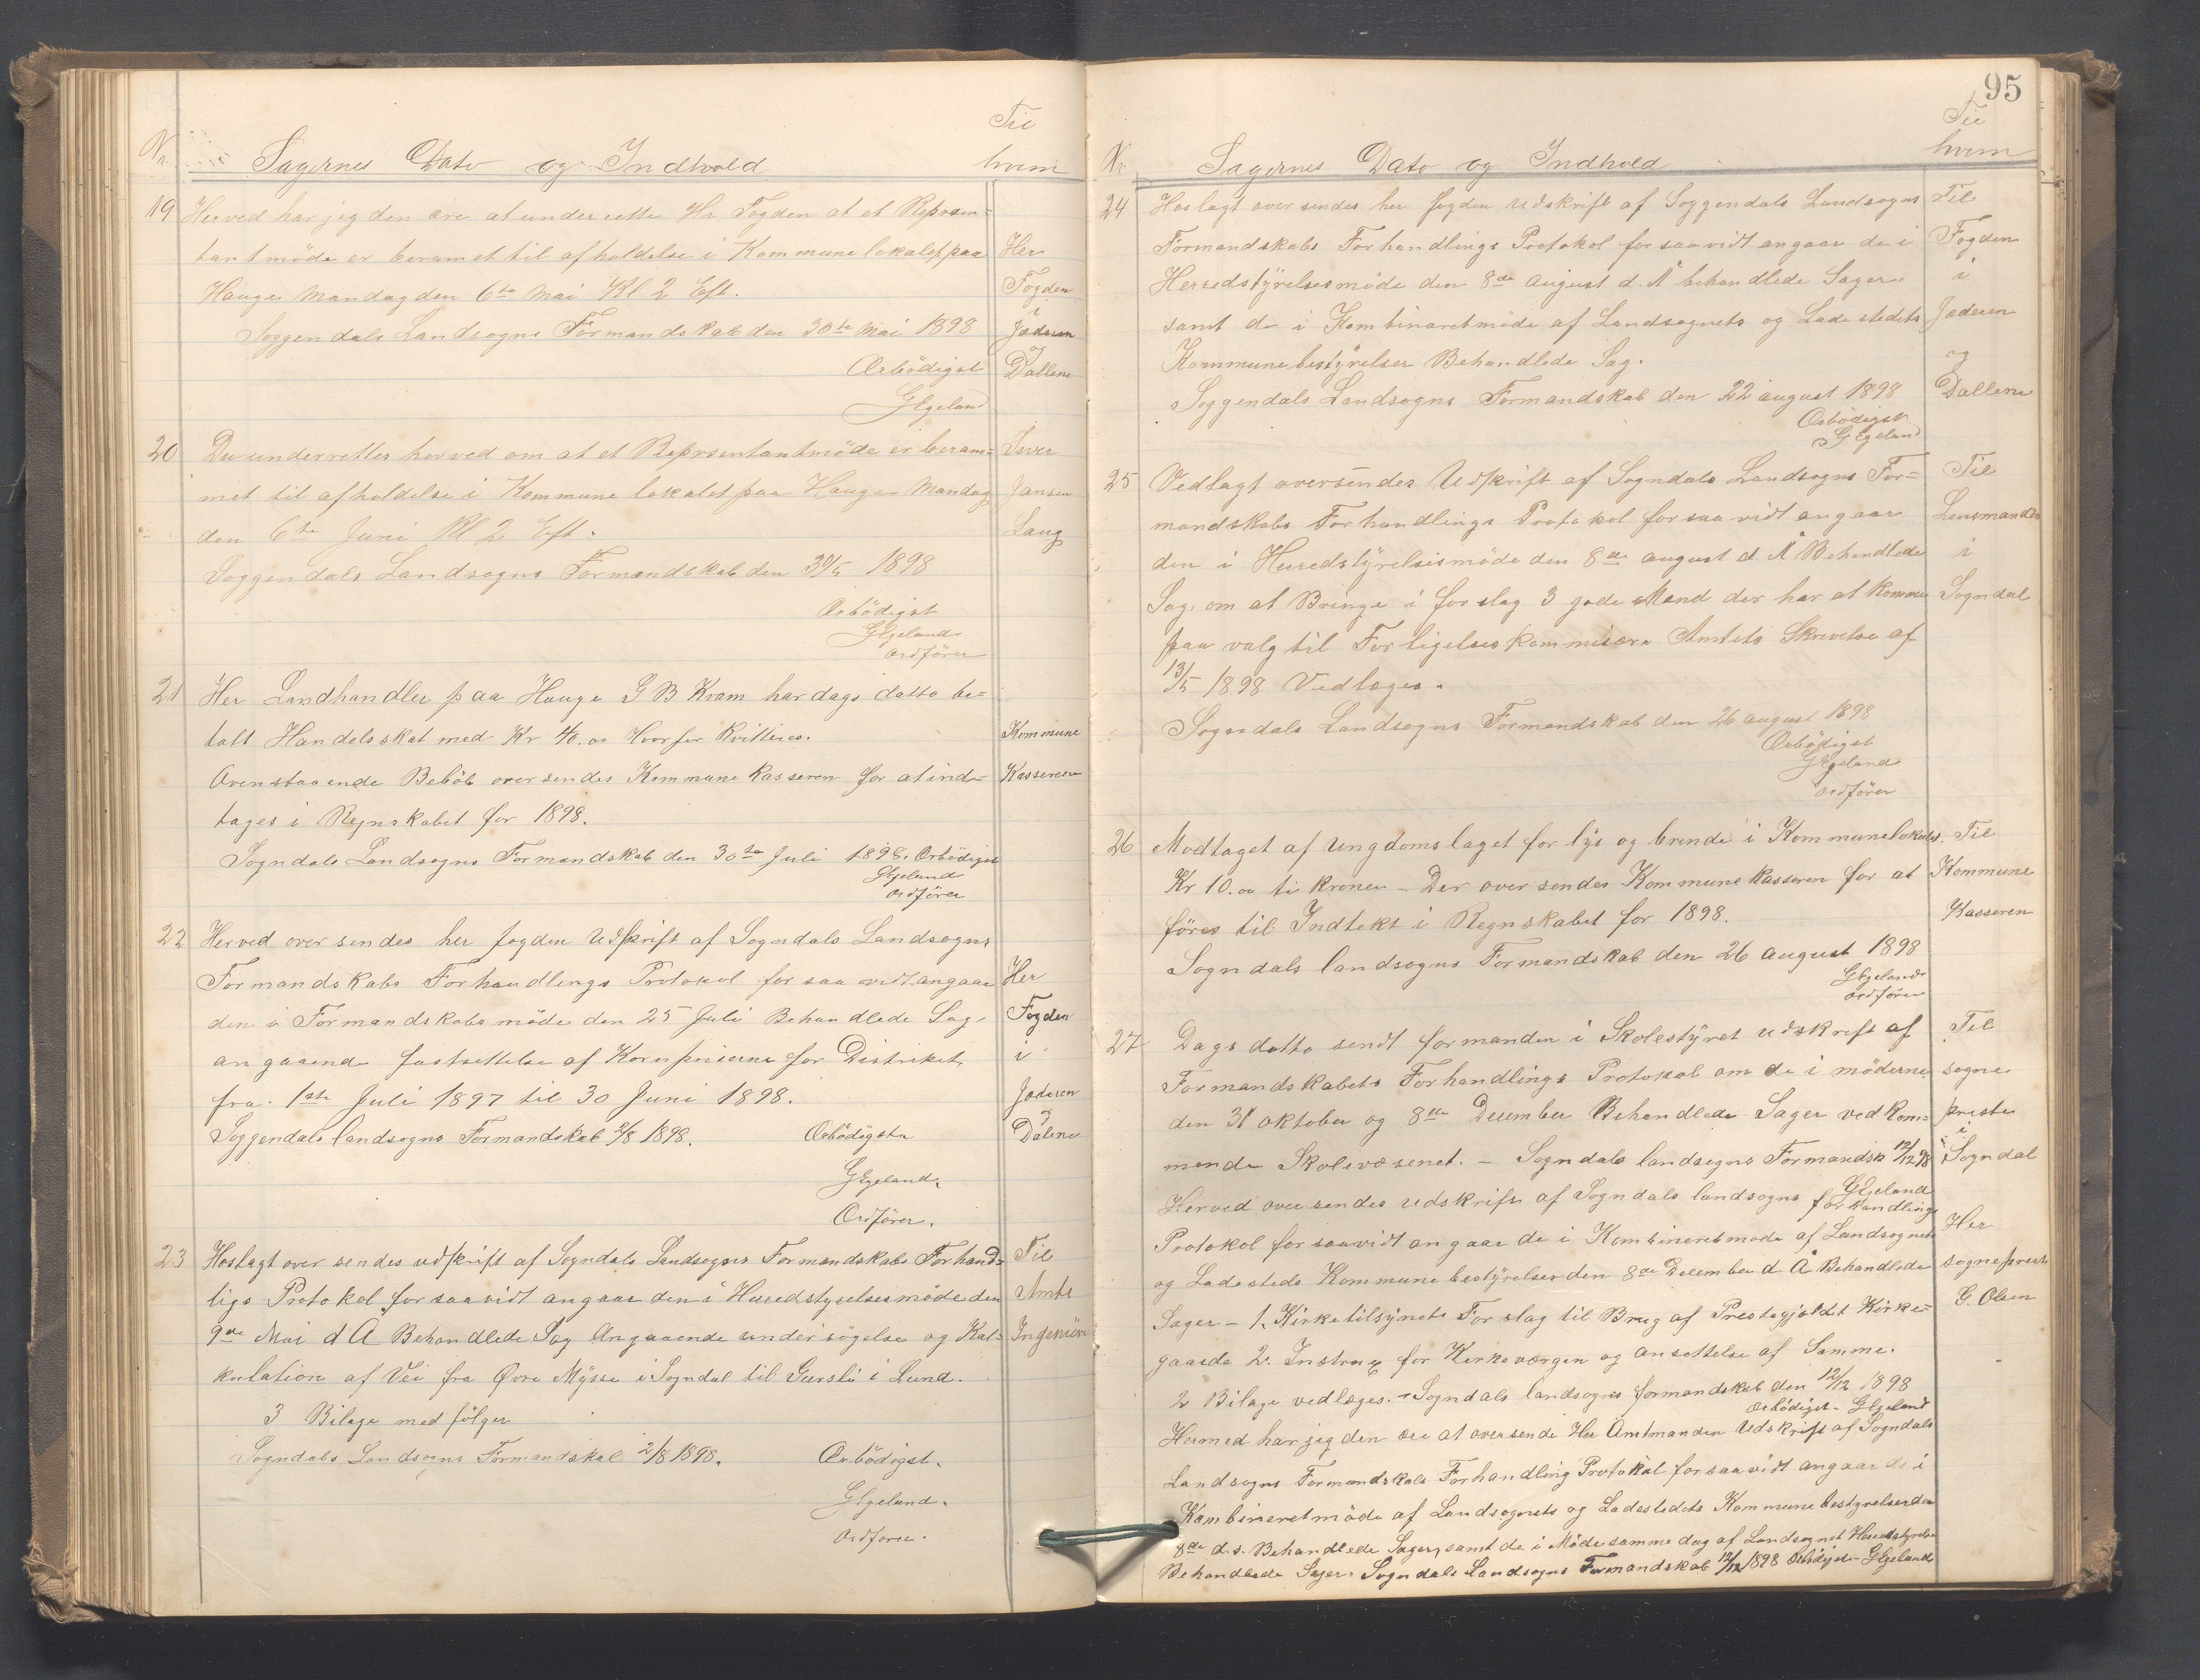 Til
No Sagernes Dato og Indhold hvem
19 Herved har jeg den ære at underrette Hr. Fogden at et Reprsen=
tantmöde er berammet til afholdelse i Kommunelokalet paa Her
Hauge Mandag den 6te Mai Kl 2 Eft. Fogden
i
Soggendals Landsogns Formandskab den 30te Mai 1898 Jæderen
og
Ærbödigst Dallene
GEgeland
20 De underrettes herved om at et Reprsentantmöde er beram= Iver
met til afholdelse i Kommune lokalet paa Hauge Mandag Jansen
den 6te Juni Kl 2 Eft. Laug
Soggendals Landsogns Formandskab den 30/5 1898
Ærbödigst
GEgeland
ordförer
21 Her Landhandler paa Hauge G B Kram har dags datto be=
talt Handelsskat med Kr 40.00 Hvorfor Kvitteres. Kommune
Ovenstaaende Belöb oversendes Kommune Kasseren for at ind= Kasseren
tages i Regnskabet for 1898.
Sogndals Landsogns Formandskab den 30te Juli 1898. Ærbödigst
GEgeland
ordförer
22 Herved oversendes her fogden Udskrift af Sogndals Landsogns
Formandskabs Forhandlings Protokol for saa vidt angaar Her
den i Formandskabsmöde den 25 Juli Behandlede Sag, Fogden
angaaende fastsettelse af Kornpriserne for Distriket i
fra 1ste Juli 1897 til 30 Juni 1898. Jæderen
og
Soggendals landsogns Formandskab 2/8 1898. Ærbödigst Dalene
GEgeland.
Ordförer.
23 Hoslagt oversendes udskrift af Sogndals Landsogns Formandskabs Forhand= Til
ligs Protokol for saavidt angaar den i Herredstyrelsesmöde den Amts
9de Mai d Å Behandlede Sag Angaaende undersögelse og Kal= Ingeniören
kulation af Vei fra Øvre Mysse i Sogndal til Gursli i Lund.
3 Bilage medfölger
Sogndals Landsogns Formandskab 2/8 1898. Ærbödigst.
GEgeland.
Ordförer.
95
Til
No Sagernes Dato og Indhold hvem
24 Hoslagt oversendes her fogden Udskrift af Soggendals Landsogns Til
Formandskabs Forhandlings Protokol for saavidt angaar de i Fogden
Herredstyrelsesmöde den 8de August d. Å behandlede Sager. i
samt de i Kombineretmöde af Landsognets og Ladestedets Jæderen
Kommunebestyrelser Behandlede Sag. og
Soggendals Landsogns Formandskab den 22 august 1898 Dallene
Ærbödigst
GEgeland
25 Vedlagt oversendes Udskrift af Sogndals Landsogns For= Til
mandskabs Forhandlings Protokol for saa vidt angaar Lensmanden
den i Herredstyrelsesmöde den 8de august d. Å Behandlede i
Sag, om at Bringe i forslag 3 gode Mænd der har at komme Sogndal
paa valg til Forligelseskommisære Amtets Skrivelse af
13/5 1898 Vedlæges.
Sogndals Landsogns Formandskab den 26 august 1898
Ærbödigst
GEgeland
ordförer
26 Modtaget af Ungdomslaget for lys og brende i Kommunelokalet. Til
Kr 10.00 ti kroner – Der oversendes Kommune Kasseren for at Kommune
föres til Indtekt i Regnskabet for 1898. Kasseren
Sogndals landsogns Formandskab den 26 august 1898
GEgeland
ordförer
27 Dags datto sendt formanden i Skolestyret udskrift af Til
Formandskabets Forhandlings Protokol om de i möderne sogne
den 31 oktober og 8de Desember Behandlede Sager vedkom= prest
i
mende Skolevæsenet. – Sogndals landsogns Formandsk 12/12 98 Sogndal
GEgeland
Herved oversendes udskrift af Sogndals landsogns forhandlings
Protokol for saavidt angaar de i Kombineretmöde af Landsognets Her
og Ladesteds Kommunebestyrelser den 8de December d Å Behandlede sogneprest
Sager – 1. Kirketilsynets Forslag til Brug af Prestegjældet Kirke= G. Olsen
gaarde 2. Instrux for Kirkeværgen og ansettelse af Samme.
2 Bilage vedlæges. – Sogndals landsogns formandskab den 12/12 1898
Ærbödigst – GEgeland
Hermed har jeg den ære at oversende Her Amtmanden Udskrift af Sogndals
Landsogns Formandskabs Forhandling Protokol forsaavidt angaar de i
Kombineretmöde af Landsognets og Ladestedets Kommunebestyrelser den
8de d.s. Behandlede Sager, samt de i Möde samme dag af Landsognet Herredstyrelse
Behandlede Sager. Sogndals Landsogns Formandskab 12/12 1898 Ærbödigst – GEgeland